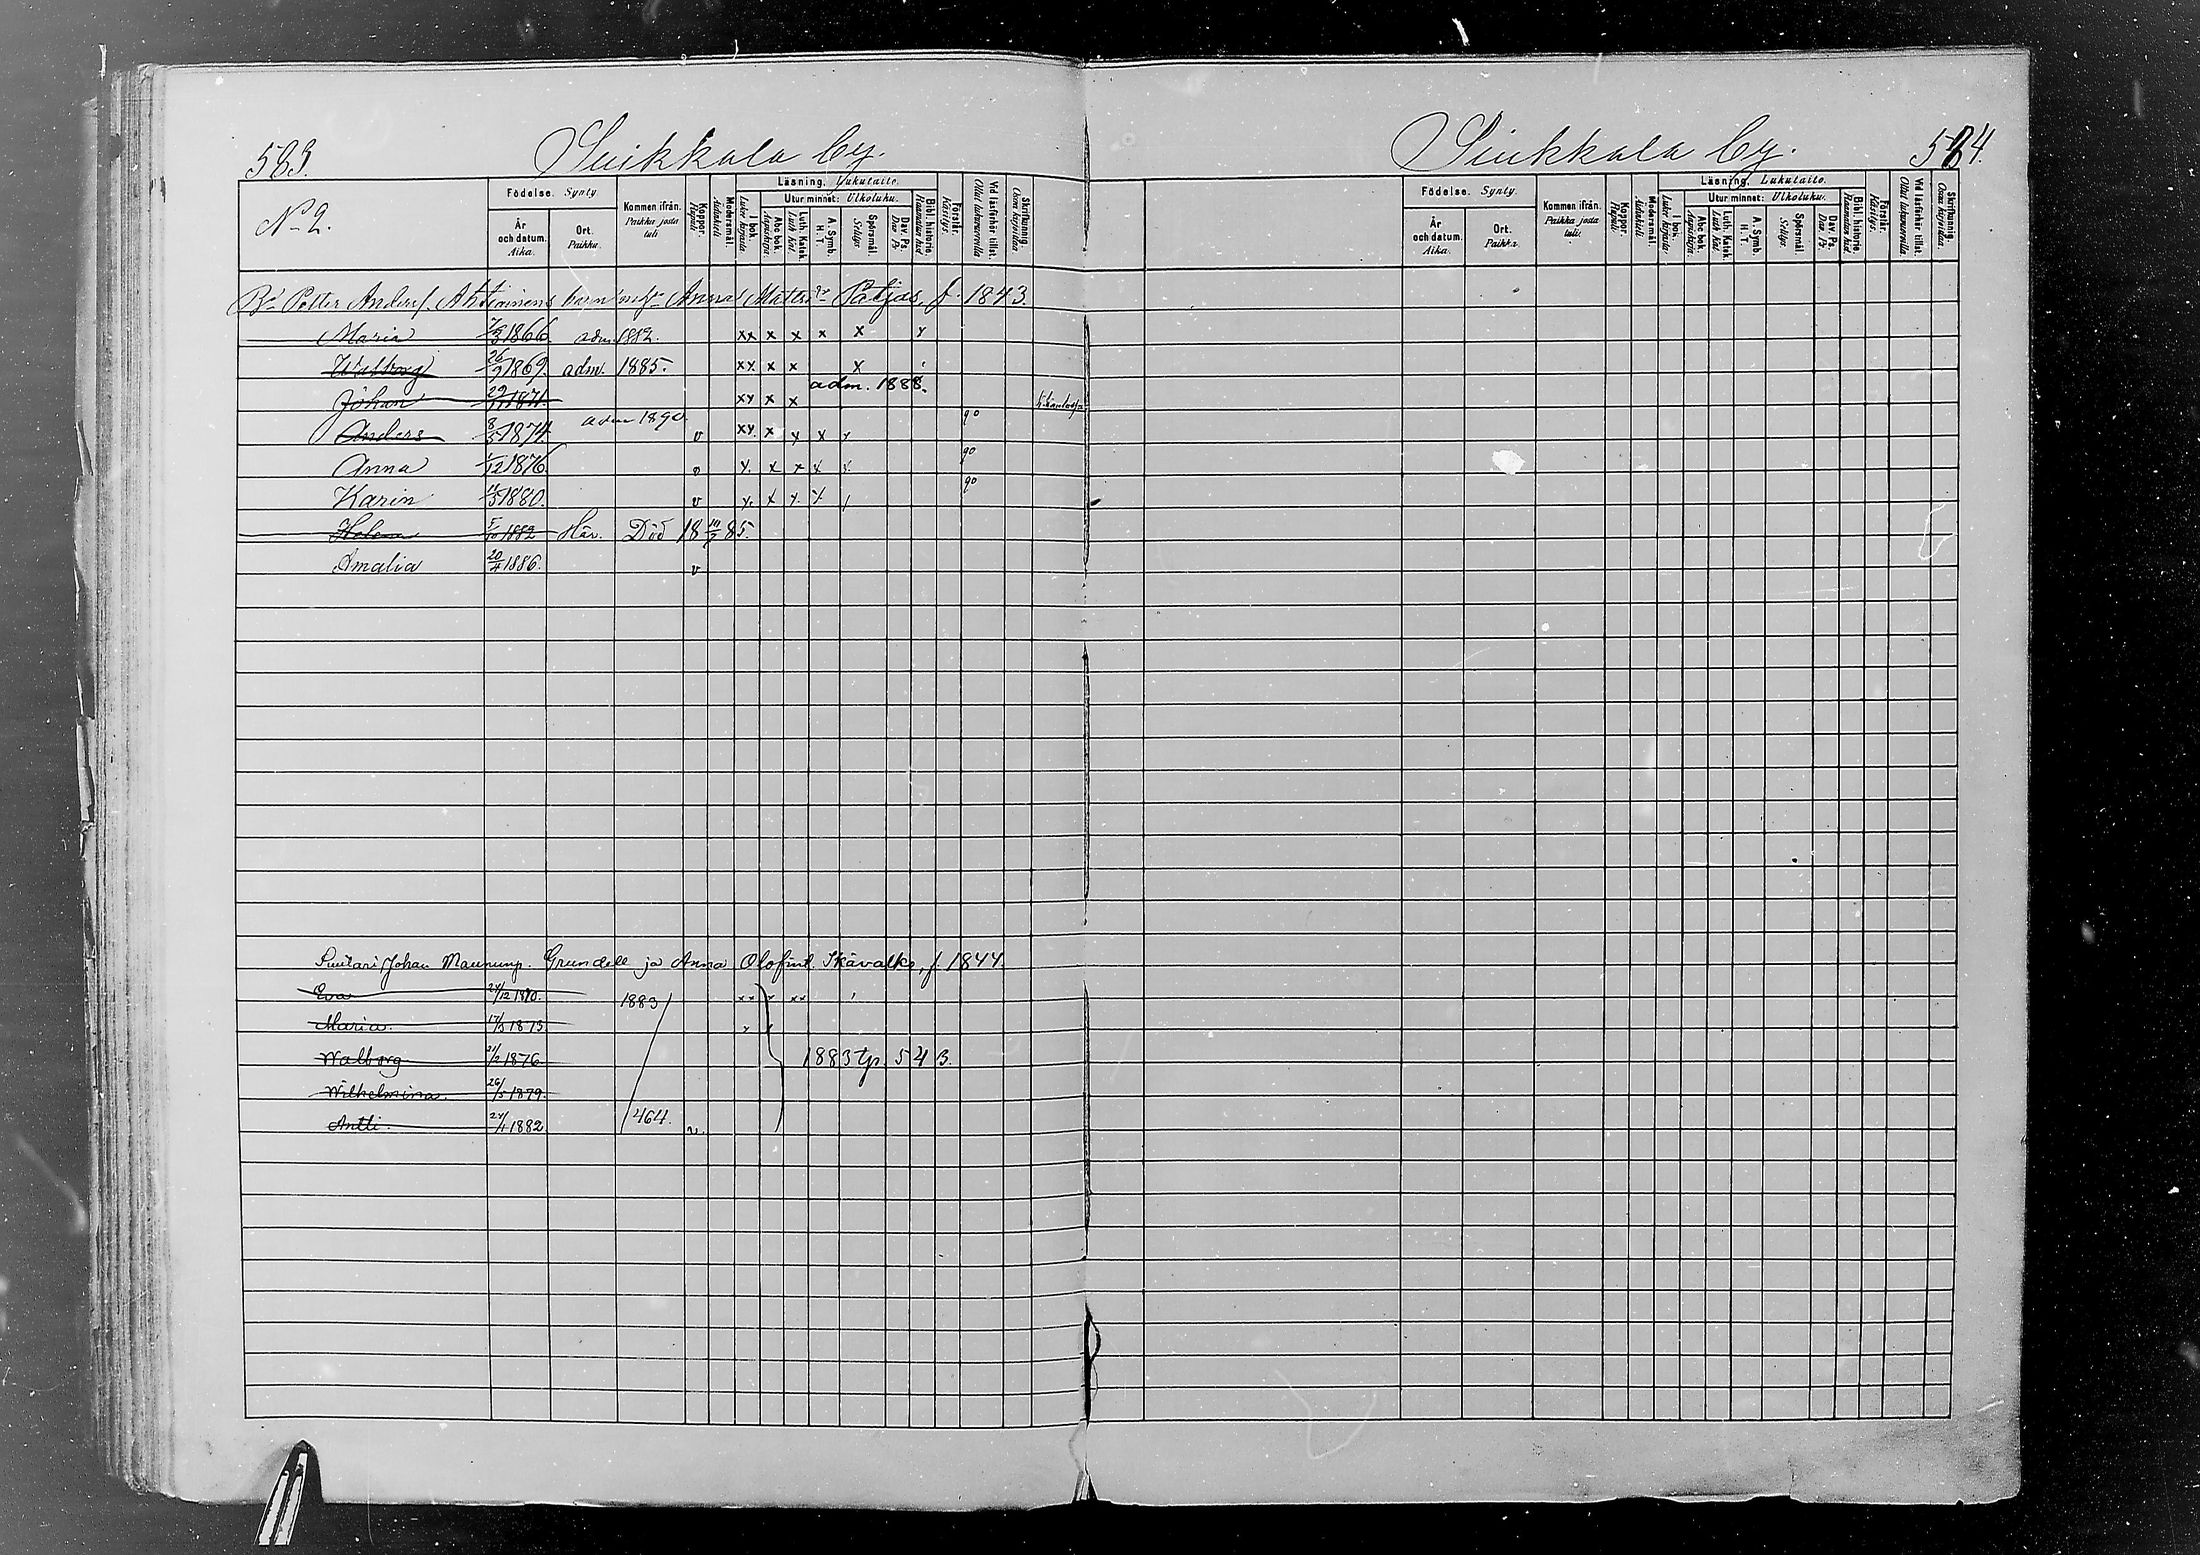 583.
Suikkala by.
No 2.
Födelse. Synty.
År och datum. Aika.
Ort. Paikka.
Kommen ifrån. Paikka josta tuli
Koppor. Rupuli
Modersmål. Äidinkieli
Läsning. Lukutaito.
I bok. Lukee kirjasta.
Utur minnet: Ulkoluku.
Abc bok. Aapiskirja.
Luth. Katek. Luth. kat.
A. Symb. H. T.
Spörsmål. Selitys.
Dav. Ps. Dav. Ps.
Bibl. historie. Raamatun hist.
Förstår. Käsitys.
Vid läsförhör tillst. Ollut lukuvuoroilla
Skrifkunnig. Osaa kirjoittaa.
Bd Petter Andersf. Ahtiainens barn m. h. Anna Matts dr Patjas, f. 1843.
Maria 7/3 1866. adm. 1882. xx x x x x x
Walborg 26/9 1869. adm. 1885. xx x x x
Johan 29/11 1871. xx x x adm. 1888.
Anders 8/5 1874. adm 1890. v xx x x x x 90
Anna 1/12 1876 v x x x x x 90
Karin 11/3 1880. v x x x x 90
Helena 5/10 1882 Här. Död 18 10/7 85.
Amalia 20/4 1886. v
Suutari Johan Maununp. Grundell ja Anna Olofint. Skävalko, f. 1844
Eva 24/12 1870. 1883 xx x xx
Maria. 17/3 1873 x
Walborg 21/2 1876 1883 tp. 543.
Wilhelmina. 26/5 1879.
Antti. 24/1 1882 464. v.
Suikkala by.
584.
Födelse. Synty.
År och datum. Aika.
Ort. Paikka.
Kommen ifrån. Paikka josta tuli.
Koppor. Rupuli
Modersmål. Äidinkieli
Läsning. Lukutaito.
I bok. Lukee kirjasta.
Utur minnet: Ulkoluku.
Abc bok. Aapiskirja.
Luth. Katek. Luth. kat.
A. Symb. H. T.
Spörsmål. Selitys.
Dav. Ps. Dav. Ps.
Bibl. historie. Raamatun hist.
Förstår. Käsitys.
Vid läsförhör tillst. Ollut lukuvuoroilla
Skrifkunnig. Osaa kirjoittaa.